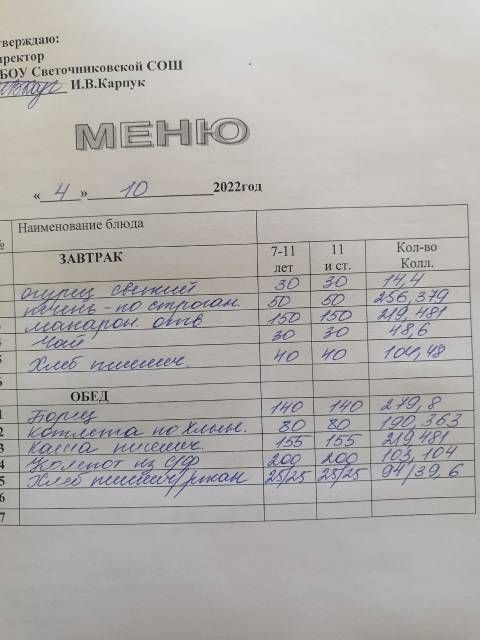 тверждаю:
иректор
БОУ Светочниковской СОШ
И.В.Карпук
МЕНЮ
« 4 » 10 2022год
№ Наименование блюда
ЗАВТРАК 7-11 лет 11 и ст. Кол-во Колл.
огурец свежий 30 30 14,4
печень-по строган. 50 50 256,379
3 макарон отв 150 150 219,481
4 Чай 30 30 48,6
5 Хлеб пшенич. 40 40 104,48
6
ОБЕД
1 Борщ 140 140 279,8
2 Котлета по 80 80 190,363
3 Каша пшенич. 155 155 219481
4 Компот из с/ф 200 200 103,104
5 Хлеб пшенич/ржан 25/25 25/25 94/39,6
6
7